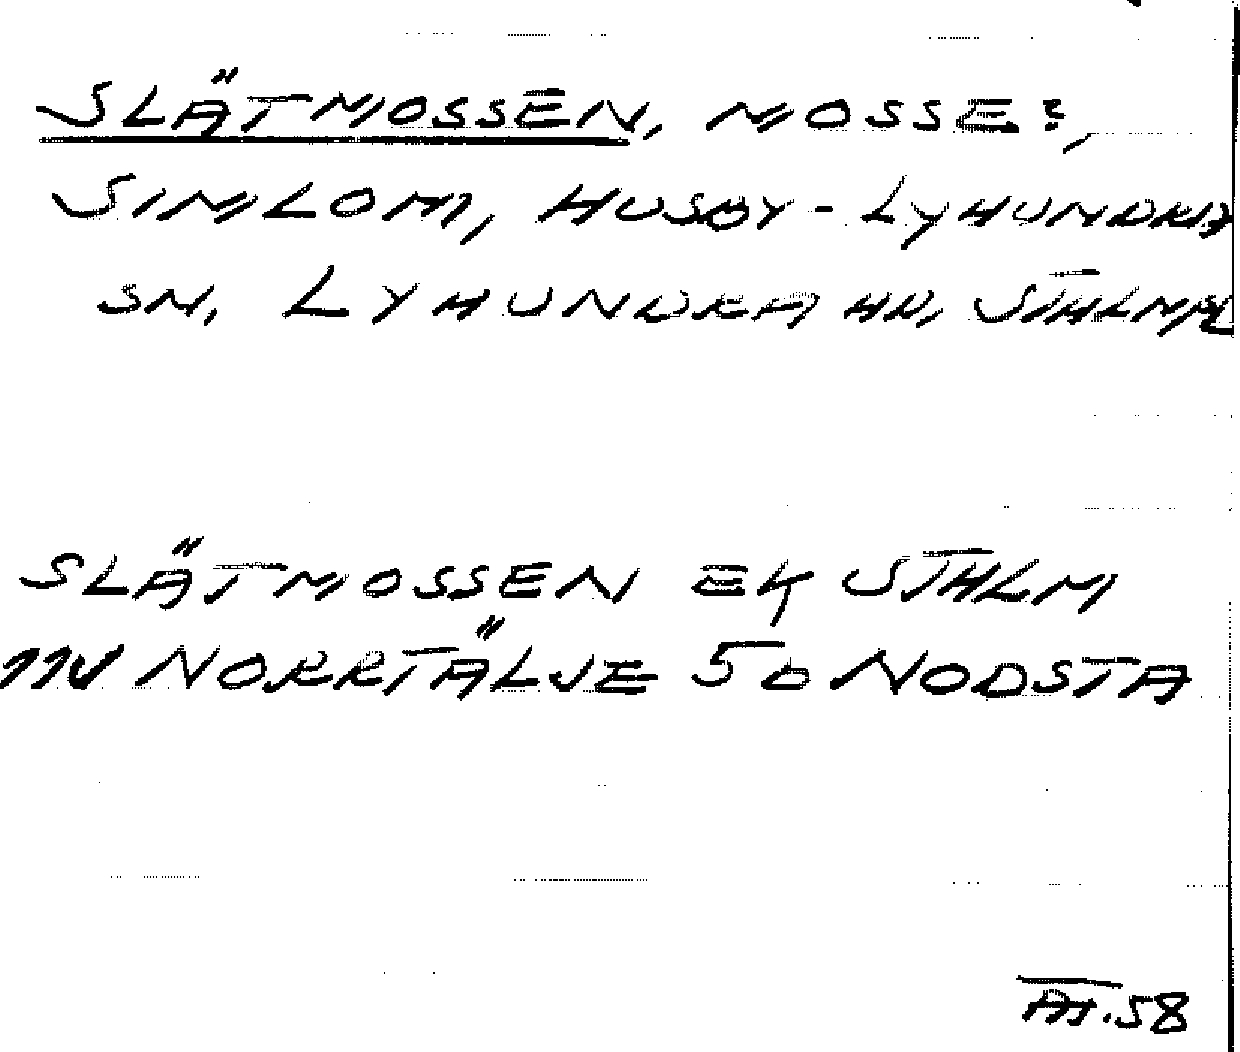 SLÄTMOSSEN, MOSSE?,
SIMLOM, HUSBY-LYHUNDRA
SN, LYHUNDRA HD, STHLMS L
SLÄTMOSSEN EK STHLM
11V NORRTÄLJE 5b NODSTA
58